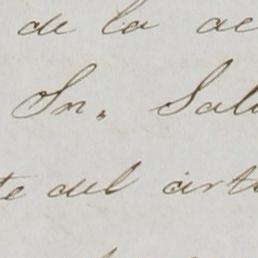 de la ac
Sn. Salv
te del arti